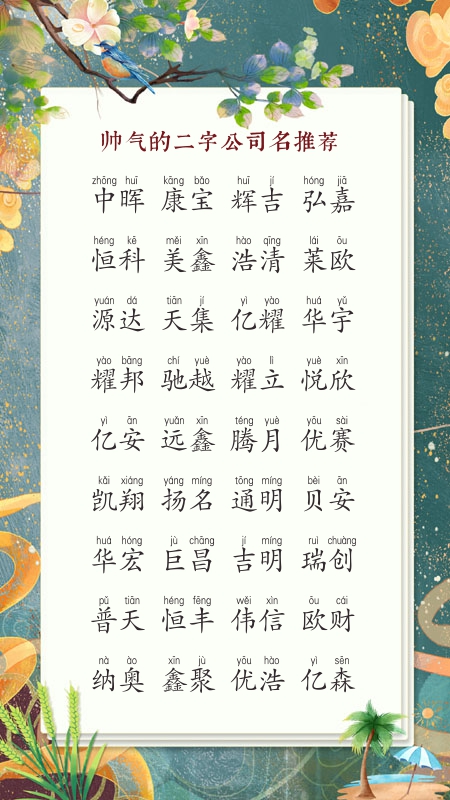 帅气的二字公司名推荐
zhōng huī kāng bǎo huī jí hóng jiā
中晖 康宝 辉吉 弘嘉
héng kē měi xīn hào qīng lái ōu
恒科 美鑫 浩清 莱欧
yuán dá tiān jí yì yào huá yǔ
源达 天集 亿耀 华宇
yào bāng chí yuè yào lì yuè xīn
耀邦 驰越 耀立 悦欣
yì ān yuǎn xīn téng yuè yōu sài
亿安 远鑫 腾月 优赛
kǎi xiáng yáng míng tōng míng bèi ān
凯翔 扬名 通明 贝安
huá hóng jù chāng jí míng ruì chuàng
华宏 巨昌 吉明 瑞创
pǔ tiān héng fēng wěi xìn ōu cái
普天 恒丰 伟信 欧财
nà ào xīn jù yōu hào yì sēn
纳奥 鑫聚 优浩 亿森